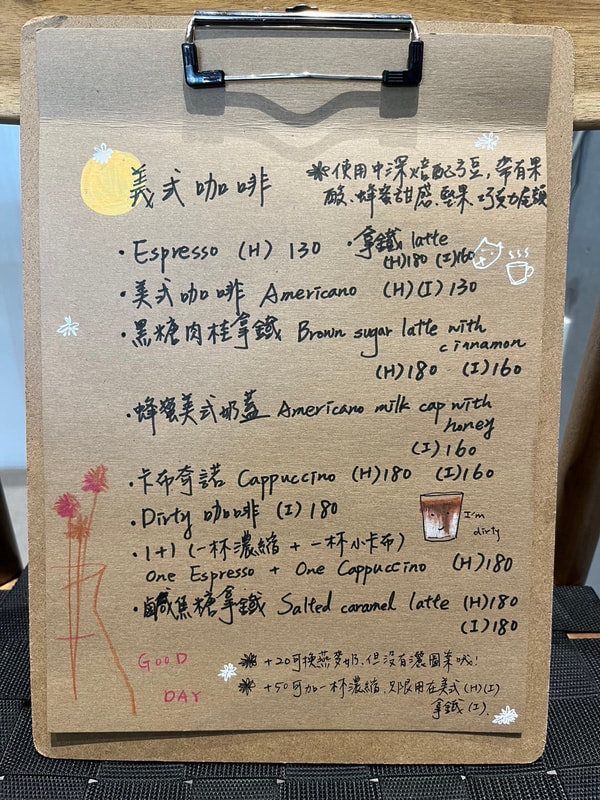 義式咖啡
※使用中深焙配方豆，帶有果
酸、蜂蜜甜感、堅果、巧克力尾韻
·Espresso (H) 130
·拿鐵 latte
(H)180 (I)160
·美式咖啡 Americano (H)(I)130
·黑糖肉桂拿鐵 Brown sugar latte with
cinnamon
(H)180 (I)160
·蜂蜜美式奶蓋 Americano milk cap with
honey
(I)160
·卡布奇諾 Cappuccino (H)180 (I)160
·Dirty 咖啡 (I)180
I'm
dirty
·1+1 (一杯濃縮 + 一杯小卡布)
One Espresso + One Cappuccino (H)180
·鹹焦糖拿鐵 Salted caramel latte (H)180
(I)180
GOOD
DAY
※ +20可換燕麥奶，但沒有漂圖案哦！
※ +50可加一杯濃縮，只限用在美式(H)(I)
拿鐵(I).